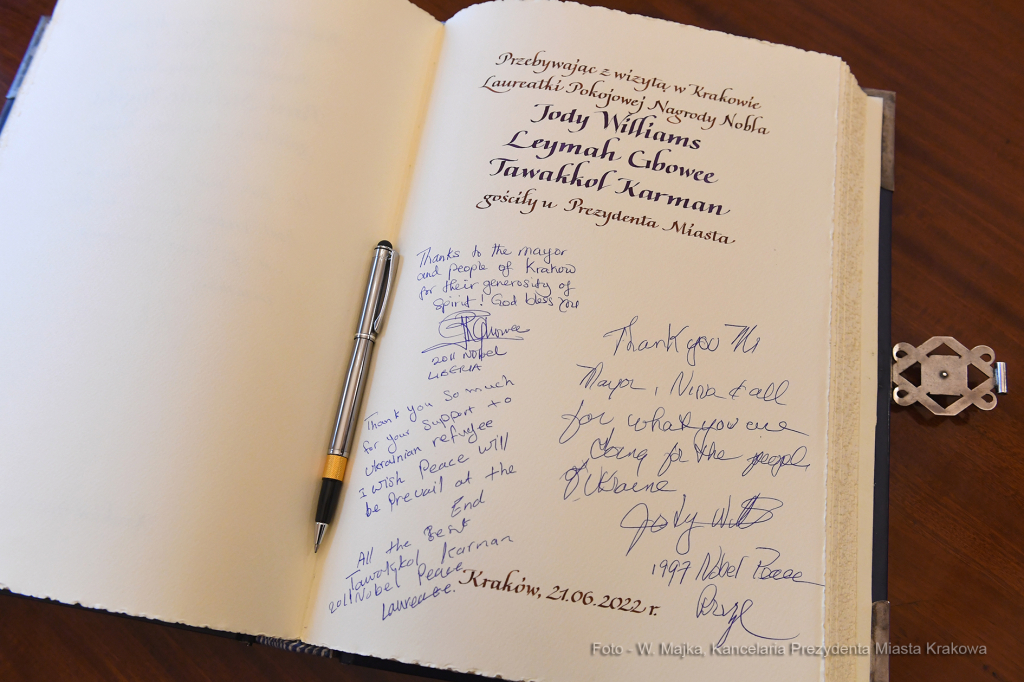 Przebywając z wizytą w Krakowie
Laureatki Pokojowej Nagrody Nobla
Jody Williams
Leymah Gbowee
Tawakkol Karman
gościły u Prezydenta Miasta
Thanks to the mayor
and people of Krakow
for their generosity of
spirit! God bless you
Gbowee
2011 Nobel
LIBERIA
Thank you so much
for your support to
Ukrainian refugee
I wish Peace will
be Prevail at the
End
All the Best
Tawakkol Karman
2011 Nobel Peace
Laureate.
Thank you Mr
Mayor, Nina & all
for what you are
doing for the people
of Ukraine
Jody
1997 Nobel Peace
Prize
Kraków, 21.06.2022 r.
Foto - W. Majka, Kancelaria Prezydenta Miasta Krakowa